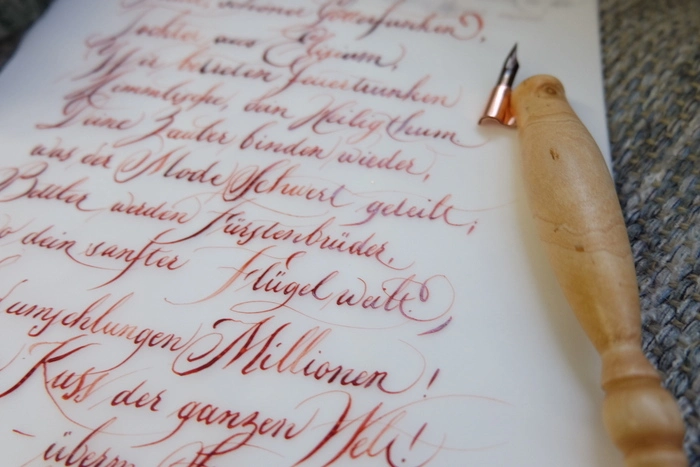 schöner Götterfunken,
Tochter aus Elysium,
Wir betreten feuertrunken
Himmlische, dein Heiligthum
Deine Zauber binden wieder,
was der Mode Schwert geteilt;
Bettler werden Fürstenbrüder,
dein sanfter Flügel weilt,
umschlungen Millionen!
Kuss der ganzen Welt!
– überm